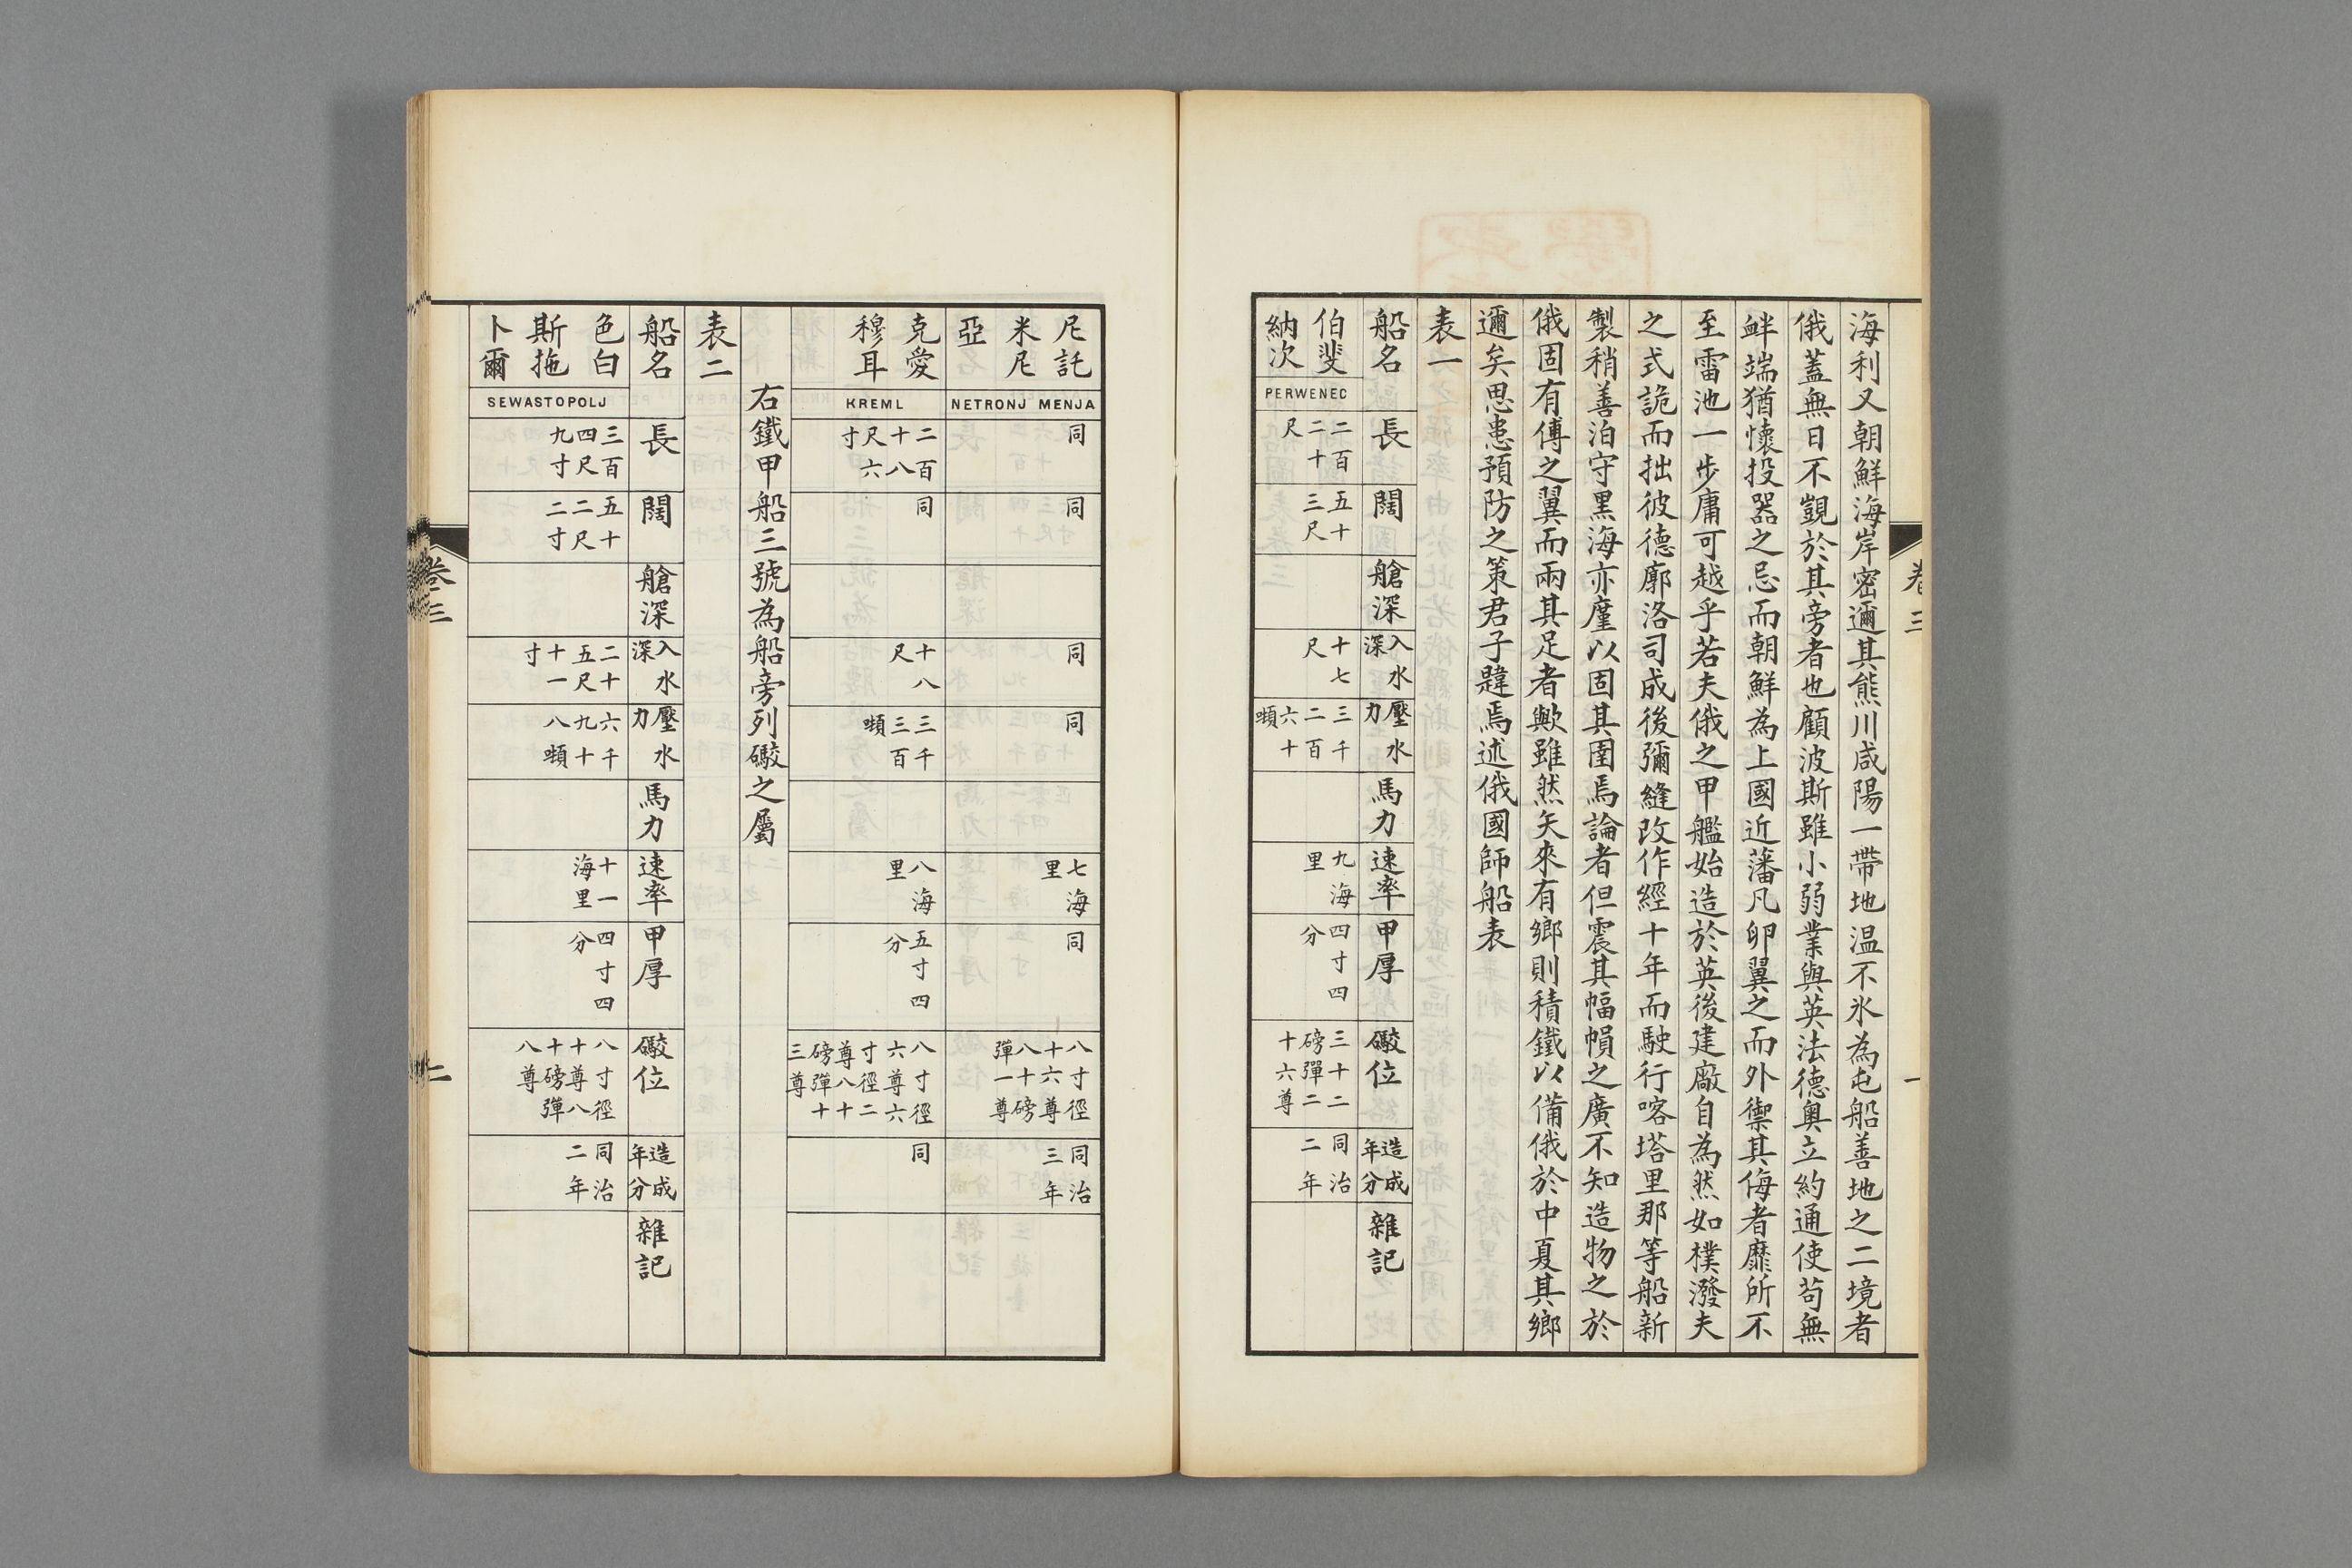 海利又朝鮮海岸密邇其熊川咸陽一帶地温不氷為屯船善地之二境者
俄蓋無日不覬於其旁者也顧波斯雖小弱業與英法德奧立約通使苟無
衅端猶懷投器之忌而朝鮮為上國近藩凡卵翼之而外禦其侮者靡所不
至雷池一步庸可越乎若夫俄之甲艦始造於英後建廠自為然如樸潑夫
之式詭而拙彼德廓洛司成後彌縫改作經十年而駛行喀塔里那等船新
製稍善泊守黑海亦廑以固其圉焉論者但震其幅幀之廣不知造物之於
俄固有傅之翼而兩其足者歟雖然矢來有鄉則積鐵以備俄於中夏其鄉
邇矣思患預防之策君子韙焉述俄國師船表
表一
船名
長
闊
艙深
入水深
壓水力
馬力
速率
甲厚
礮位
造成年分
雜記
伯斐納次
PERWENEC
二百二十尺
五十三尺
十七尺
三千二百六十噸
九海里
四寸四分
三十二磅彈二十六尊
同治二年
卷三
一
尼託米尼亞
NETRONJ MENJA
同
同
同
同
七海里
同
八寸徑十六尊八十磅彈一尊
同治三年
克愛穆耳
KREML
二百十八尺六寸
同
十八尺
三千三百噸
八海里
五寸四分
八寸徑六尊六寸徑二尊八十磅彈十三尊
同
右鐵甲船三號為船旁列礮之屬
表二
船名
長
闊
艙深
入水深
壓水力
馬力
速率
甲厚
礮位
造成年分
雜記
色白斯拖卜爾
SEWASTOPOLJ
三百四尺九寸
五十二尺二寸
二十五尺十一寸
六千九十八噸
十一海里
四寸四分
八寸徑十尊八十磅彈八尊
同治二年
卷三
二